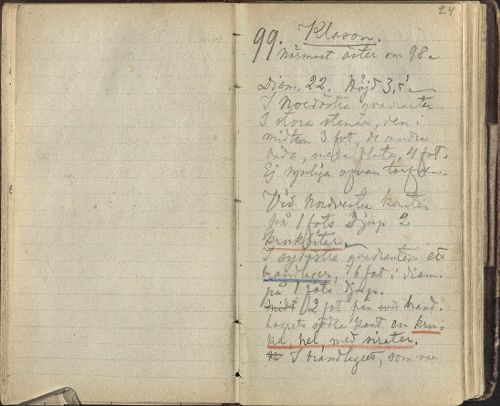 24
99. Klason.
Närmast öster om 98.
Diam. 22. Höjd 3,5'.
I Nordöstra quadranten
3 stora stenar, den i
midten 3 fot, de andra
båda, mera platta, 4 fot.
Ej synliga ofvan torfven.
Vid Nordvestra kanten
på 1 fots djup 2
krukbitar.
I sydöstra quadranten ett
brandlager, 6 fot i diam.
på 1 fots djup.
2 fot från brand-
lagrets södra kant en kru-
ka, hel, med sirater.
I brandlagret, som var